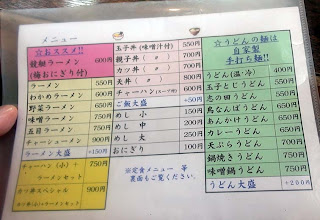 メニュー
☆おススメ!!
饅艇ラーメン
(梅おにぎり付)
600円
ラーメン 550円
わかめラーメン 600円
野菜ラーメン 650円
味噌ラーメン 750円
五目ラーメン 750円
チャーシューメン 900円
ラーメン大盛 +150円
チャーハン(小)+
ラーメンセット
750円
カツ丼スペシャル
カツ丼(小)+ラーメンセット
900円
玉子丼(味噌汁付) 550円
親子丼( 〃 ) 700円
カツ丼( 〃 ) 700円
天丼( 〃 )
チャーハン(スープ付) 600円
ご飯大盛
めし 小 150円
めし 中 200円
めし 大 250円
おにぎり 100円
※定食メニュー 等
裏面もご覧ください。
☆うどんの麺は
自家製
手打ち麺!!
うどん(温・冷) 400円
玉子とじうどん 500円
志の田うどん 550円
鳥なんばうどん
あんかけうどん 650円
カレーうどん
天ぷらうどん 700円
鍋焼きうどん 750円
味噌鍋うどん 750円
うどん大盛 +200円